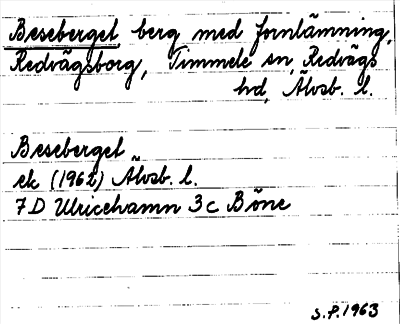 Beseberget berg med fornlämning,
Redvägsborg, Timmele sn, Redvägs
hd, Älvsb. l.
Beseberget
ek (1962) Älvsb. l.
7D Ulricehamn 3c Böne
S.P. 1963